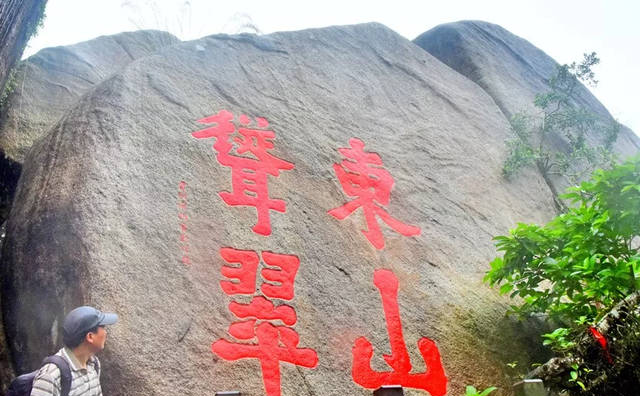 東山
聳翠